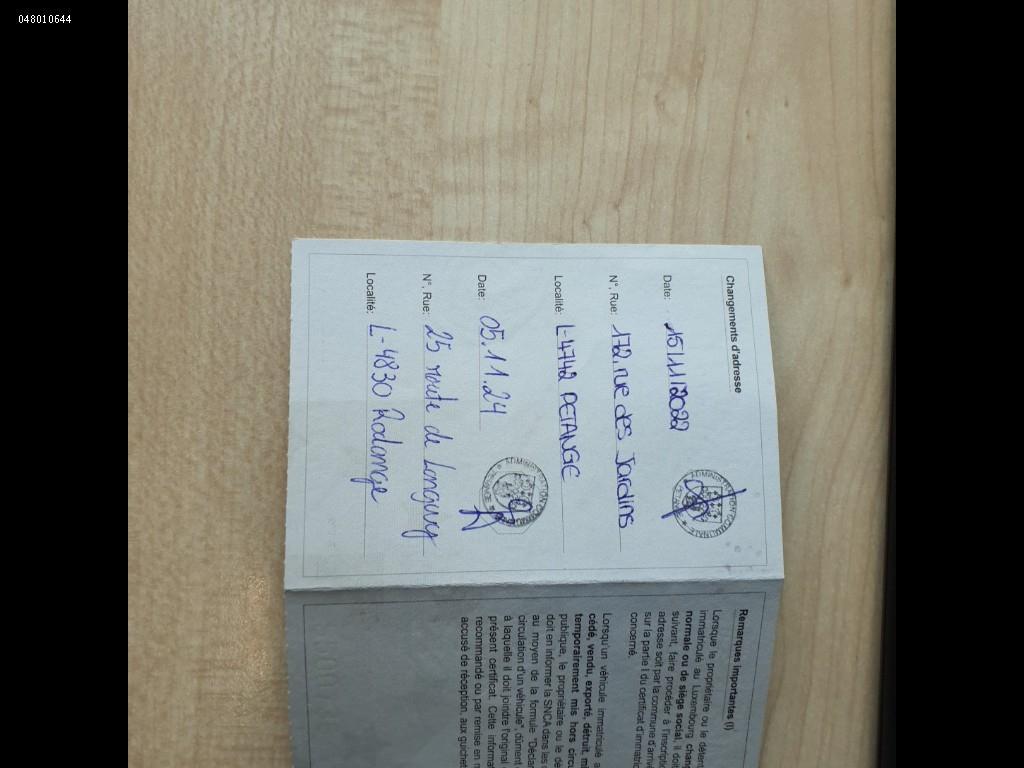 048010644
Changements d'adresse
Date: 15/11/2022
ADMINISTRATION COMMUNALE
N°, Rue: 172, rue des Jardins
Localité: L-4742 PETANGE
Date: 05.11.24
ADMINISTRATION COMMUNALE
N°, Rue: 25 route de Longwy
Localité: L-4830 Rodange
Remarques importantes (I)
Lorsque le propriétaire ou le déten
immatriculé au Luxembourg chan
normale ou de siège social, il doit
suivant, faire procéder à l'inscripti
adresse soit par la commune d'arriv
sur la partie I du certificat d'immatric
concerné.
Lorsqu'un véhicule immatriculé a
cédé, vendu, exporté, détruit, mi
temporairement mis hors circu
publique, le propriétaire ou le dé
doit en informer la SNCA dans les
au moyen de la formule "Déclar
circulation d'un véhicule" dûment
à laquelle il doit joindre l'original
présent certificat. Cette informat
recommandé ou par remise en m
accusé de réception, aux guichet